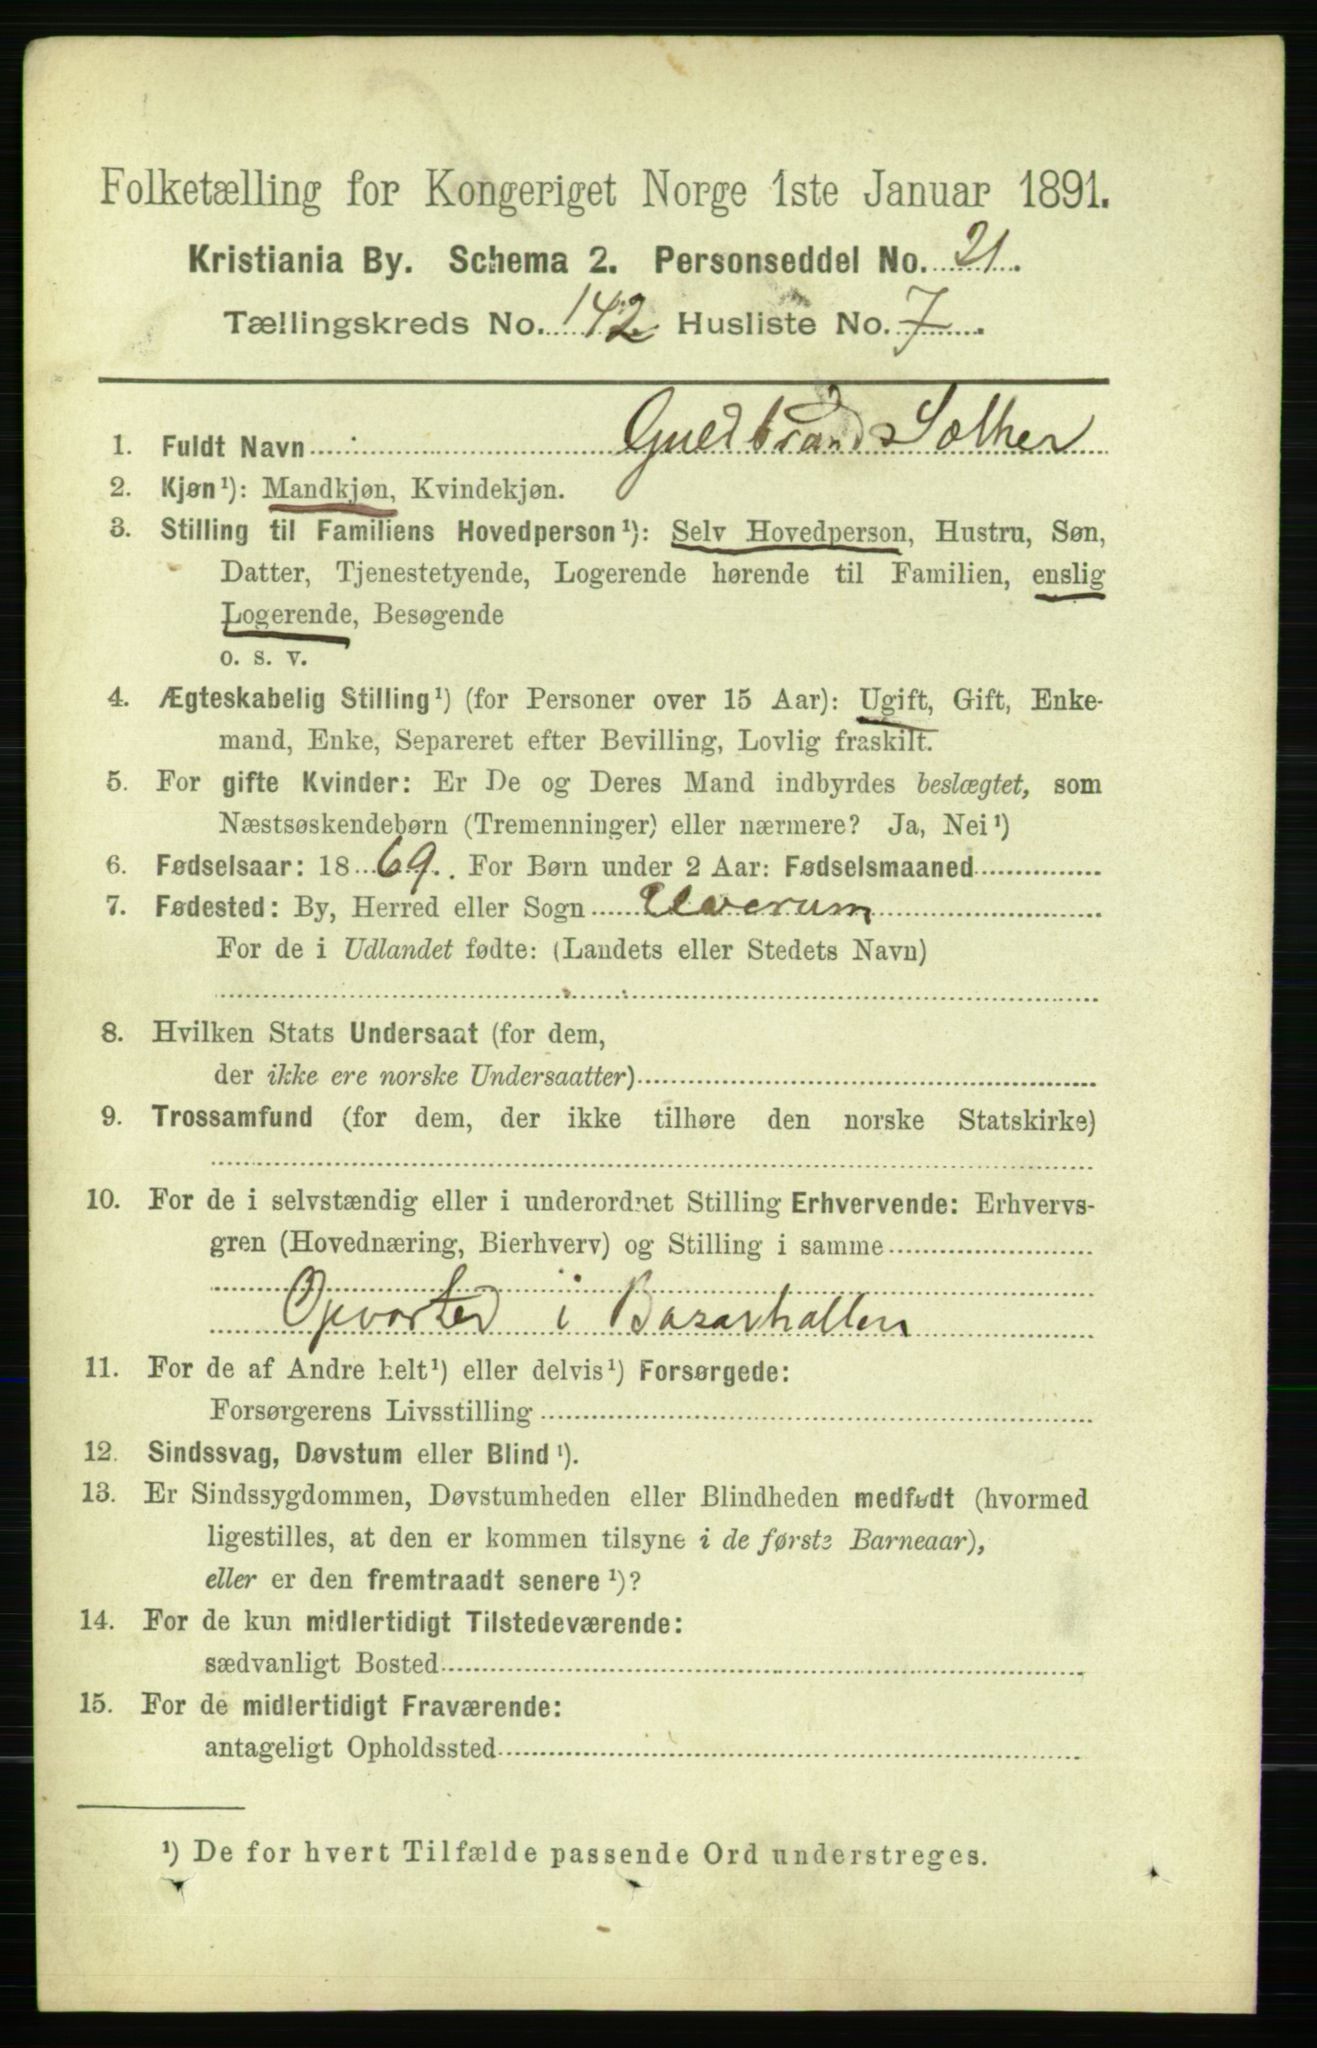 Folketælling for Kongeriget Norge 1ste Januar 1891.
Kristiania By. Schema 2. Personseddel No. 21.
Tællingskreds No. 142 Husliste No. 7.
1. Fuldt Navn Guldbrand Sæther
2. Kjøn¹): Mandkjøn, Kvindekjøn.
3. Stilling til Familiens Hovedperson¹): Selv Hovedperson, Hustru, Søn,
Datter, Tjenestetyende, Logerende hørende til Familien, enslig
Logerende, Besøgende
o. s. v.
4. Ægteskabelig Stilling¹) (for Personer over 15 Aar): Ugift, Gift, Enke-
mand, Enke, Separeret efter Bevilling, Lovlig fraskilt.
5. For gifte Kvinder: Er De og Deres Mand indbyrdes beslægtet, som
Næstsøskendebørn (Tremenninger) eller nærmere? Ja, Nei¹)
6. Fødselsaar: 1869. For Børn under 2 Aar: Fødselsmaaned
7. Fødested: By, Herred eller Sogn Elverum
For de i Udlandet fødte: (Landets eller Stedets Navn)
8. Hvilken Stats Undersaat (for dem,
der ikke ere norske Undersaatter)
9. Trossamfund (for dem, der ikke tilhøre den norske Statskirke)
10. For de i selvstændig eller i underordnet Stilling Erhvervende: Erhvervs-
gren (Hovednæring, Bierhverv) og Stilling i samme
Opvarter i Bazarhallen
11. For de af Andre helt¹) eller delvis¹) Forsørgede:
Forsørgerens Livsstilling
12. Sindssvag, Døvstum eller Blind¹).
13. Er Sindssygdommen, Døvstumheden eller Blindheden medfødt (hvormed
ligestilles, at den er kommen tilsyne i de første Barneaar),
eller er den fremtraadt senere¹)?
14. For de kun midlertidigt Tilstedeværende:
sædvanligt Bosted
15. For de midlertidigt Fraværende:
antageligt Opholdssted
¹) De for hvert Tilfælde passende Ord understreges.